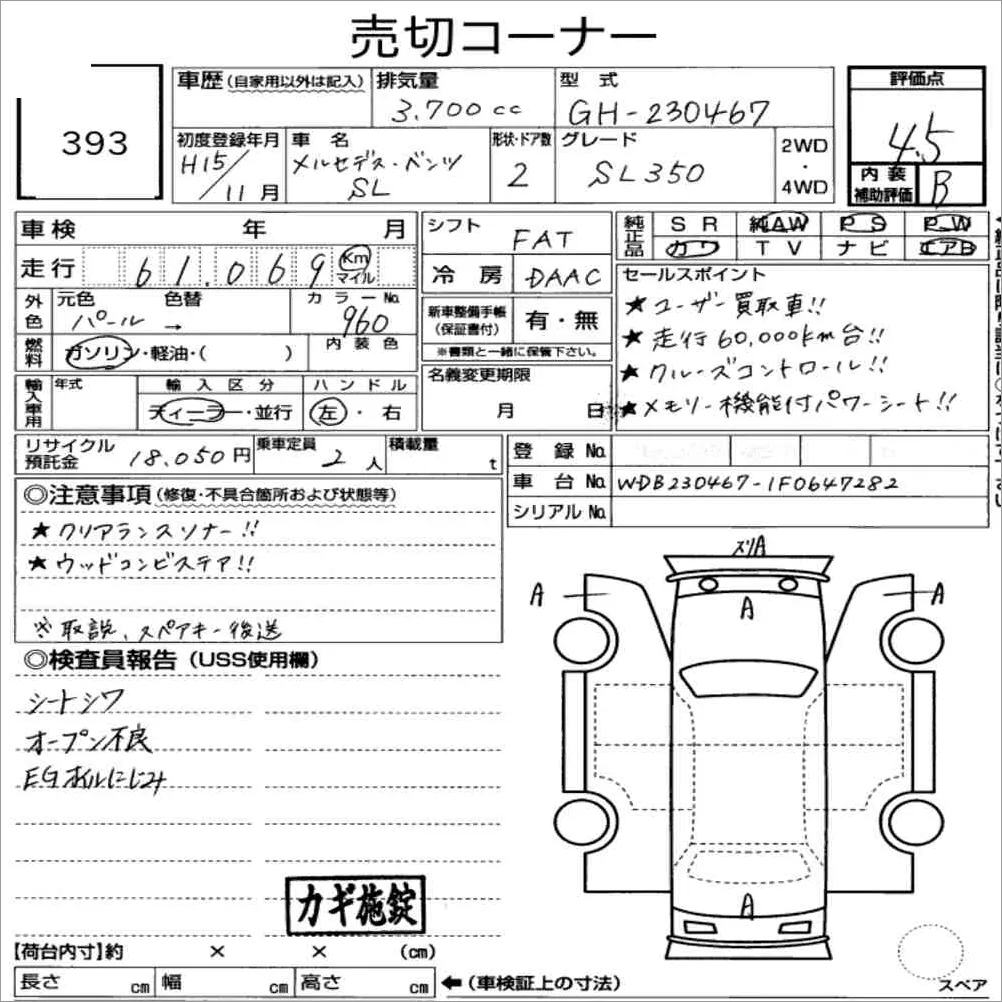 売切コーナー
393
車歴 (自家用以外は記入) 排気量 型式 評価点
3.700cc GH-230467 4.5
初度登録年月 車名 形状・ドア数 グレード 2WD・4WD
H15/11月 メルセデス・ベンツ SL 2 SL350
内装補助評価 B
車検 年 月 シフト FAT 純正品 SR 純AW PS PW
走行 61.069 Km マイル 冷房 DAAC カワ TV ナビ エアB
外色 元色 色替 カラーNo.
パール → 960
内装色
燃料 ガソリン・軽油・( )
新車整備手帳(保証書付) 有・無
※書類と一緒に保管下さい。
名義変更期限
月 日
セールスポイント
★ユーザー買取車!!
★走行60,000km台!!
★クルーズコントロール!!
★メモリー機能付パワーシート!!
輸入車用 年式 輸入区分 ハンドル
ディーラー・並行 左・右
リサイクル預託金 18.050円 乗車定員 2人 積載量 t
登録No.
車台No. WDB230467-1F0647282
シリアルNo.
◎注意事項(修復・不具合箇所および状態等)
★クリアランスソナー!!
★ウッドコンビステア!!
※取説、スペアキー後送
◎検査員報告(USS使用欄)
シートシワ
オープン不良
EGオイルにじみ
カギ施錠
スリA
A
A
A
A
【荷台内寸】約 × × (cm)
長さ cm 幅 cm 高さ cm ←(車検証上の寸法)
スペア